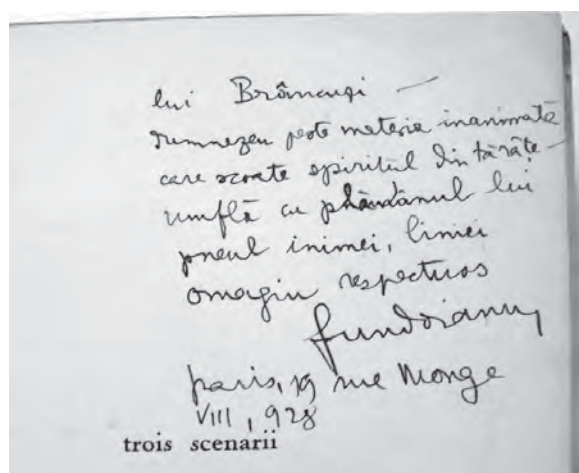 lui Brâncuși —
dumnezeu peste materia inanimată
care scoate spiritul din tărâțe —
umflă cu plămânul lui
pneul inimei, liniei
omagiu respectuos
fundoianu
paris, 19 rue Monge
VIII, 928
trois scenarii